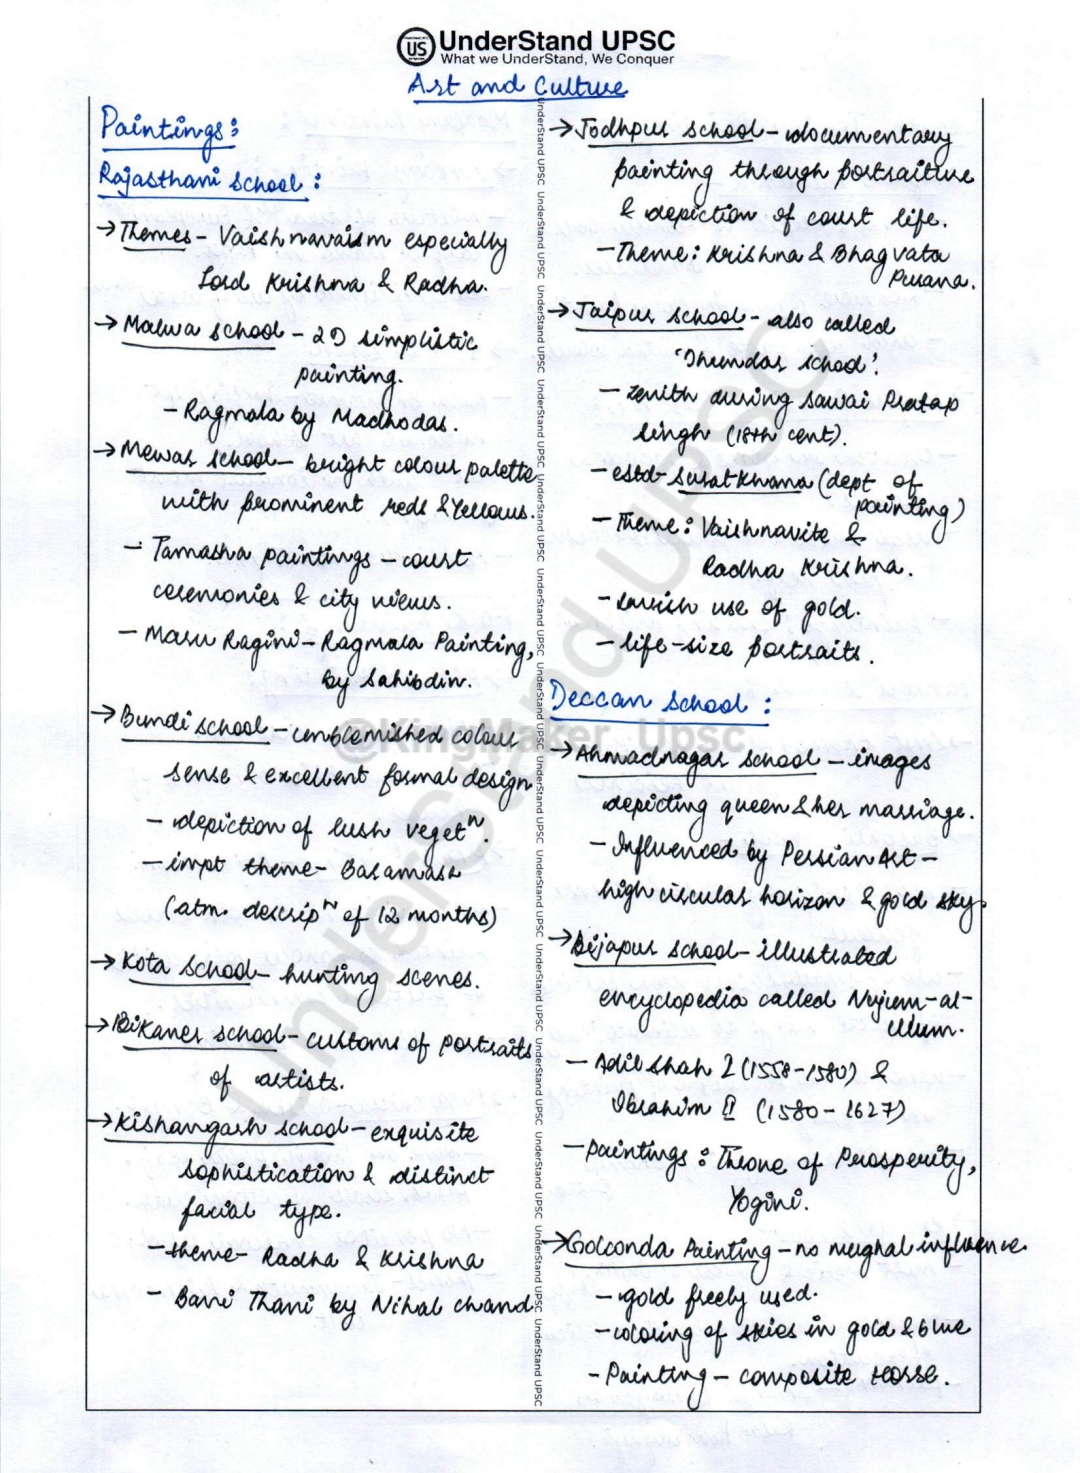 UnderStand UPSC
What we UnderStand, We Conquer
Art and Culture
Paintings:
Rajasthani School:
→ Themes - Vaishnavaism especially
Lord Krishna & Radha.
→ Malwa school - 2D simplistic
painting.
- Ragmala by Madhodas.
→ Mewar school - bright colour palette
with prominent reds & Yellows.
- Tamasha paintings - court
ceremonies & city views.
- Maru Ragini - Ragmala Painting,
by Sahibdin.
→ Bundi school - unblemished colour
sense & excellent formal design
- depiction of lush vegetⁿ.
- impt theme - Baramasa
(atm. descripⁿ of 12 months)
→ Kota School - hunting scenes.
→ Bikaner school - customs of portraits
of artists.
→ Kishangarh school - exquisite
sophistication & distinct
facial type.
- theme - Radha & Krishna
- Bani Thani by Nihal chand
→ Jodhpur school - documentary
painting through portraiture
& depiction of court life.
- Theme: Krishna & Bhagvata
Purana.
→ Jaipur school - also called
'Dhundar school'.
- zenith during Sawai Pratap
Singh (18th cent).
- estd - Suratkhana (dept of
painting)
- Theme: Vaishnavite &
Radha Krishna.
- lavish use of gold.
- life-size portraits.
Deccan School:
→ Ahmadnagar school - images
depicting queen & her marriage.
- Influenced by Persian Art -
high circular horizon & gold sky.
→ Bijapur school - illustrated
encyclopedia called Nujum-al-
Ulum.
- Adil Shah I (1558-1580) &
Ibrahim II (1580-1627)
- paintings: Throne of Prosperity,
Yogini.
→ Golconda Painting - no mughal influence
- gold freely used.
- coloring of skies in gold & blue
- Painting - composite Horse.
@KingMaker_Upsc
UnderStand UPSC